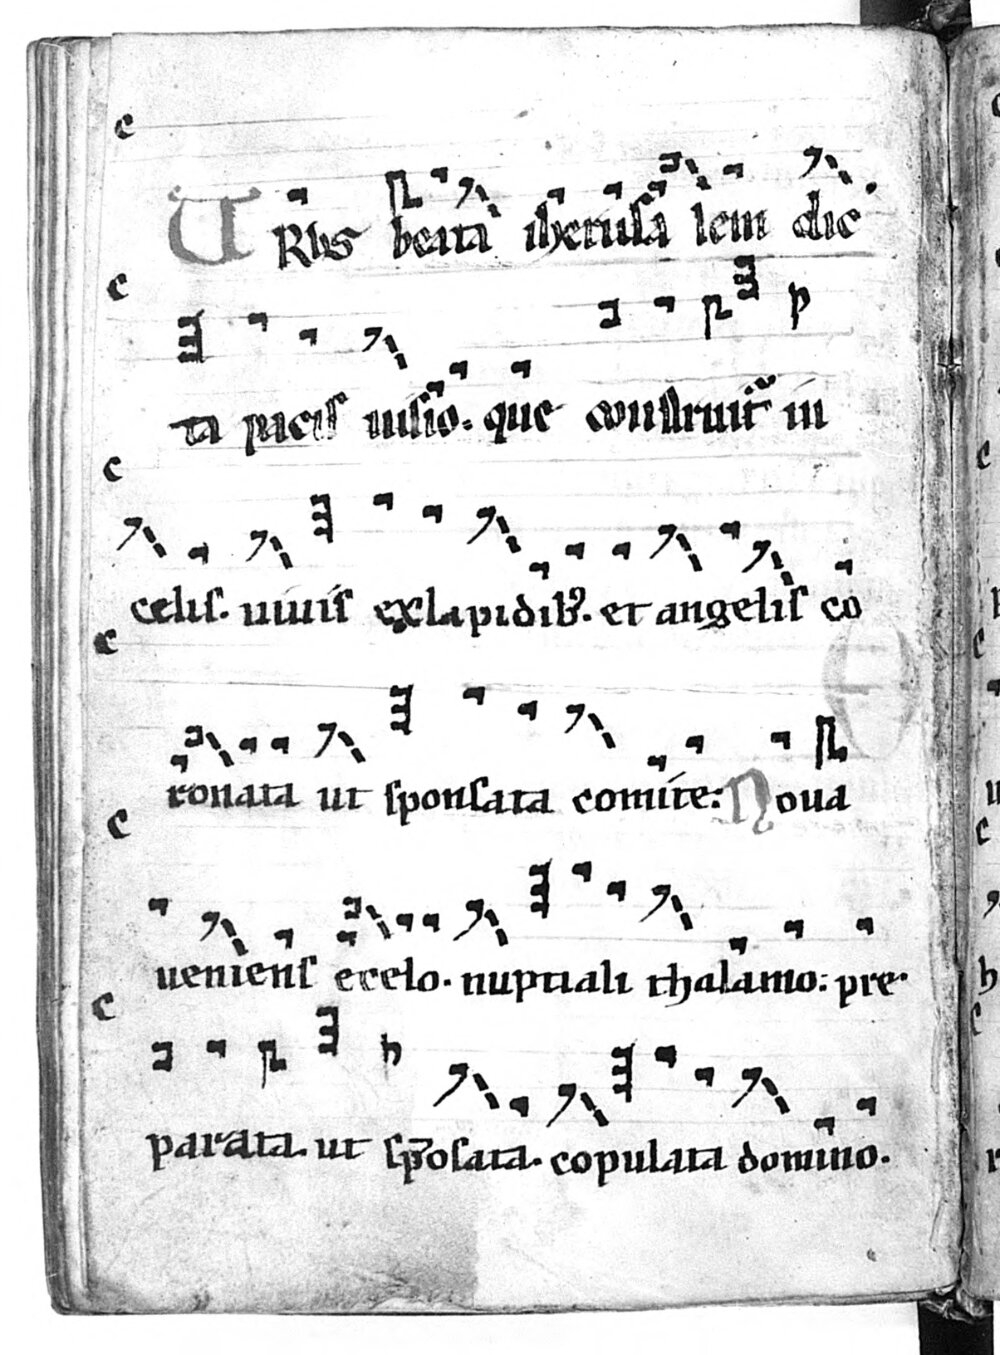 c
URbs beata iherusa lem dic
c
ta pacis uisio. que construit᷑ in
c
celis. uiuis exlapidib9. et angelis co
c
ronata ut sponsata comite: Noua
c
ueniens ecelo. nuptiali thalamo: pre
c
parata. ut sp̄osata. copulata domino.